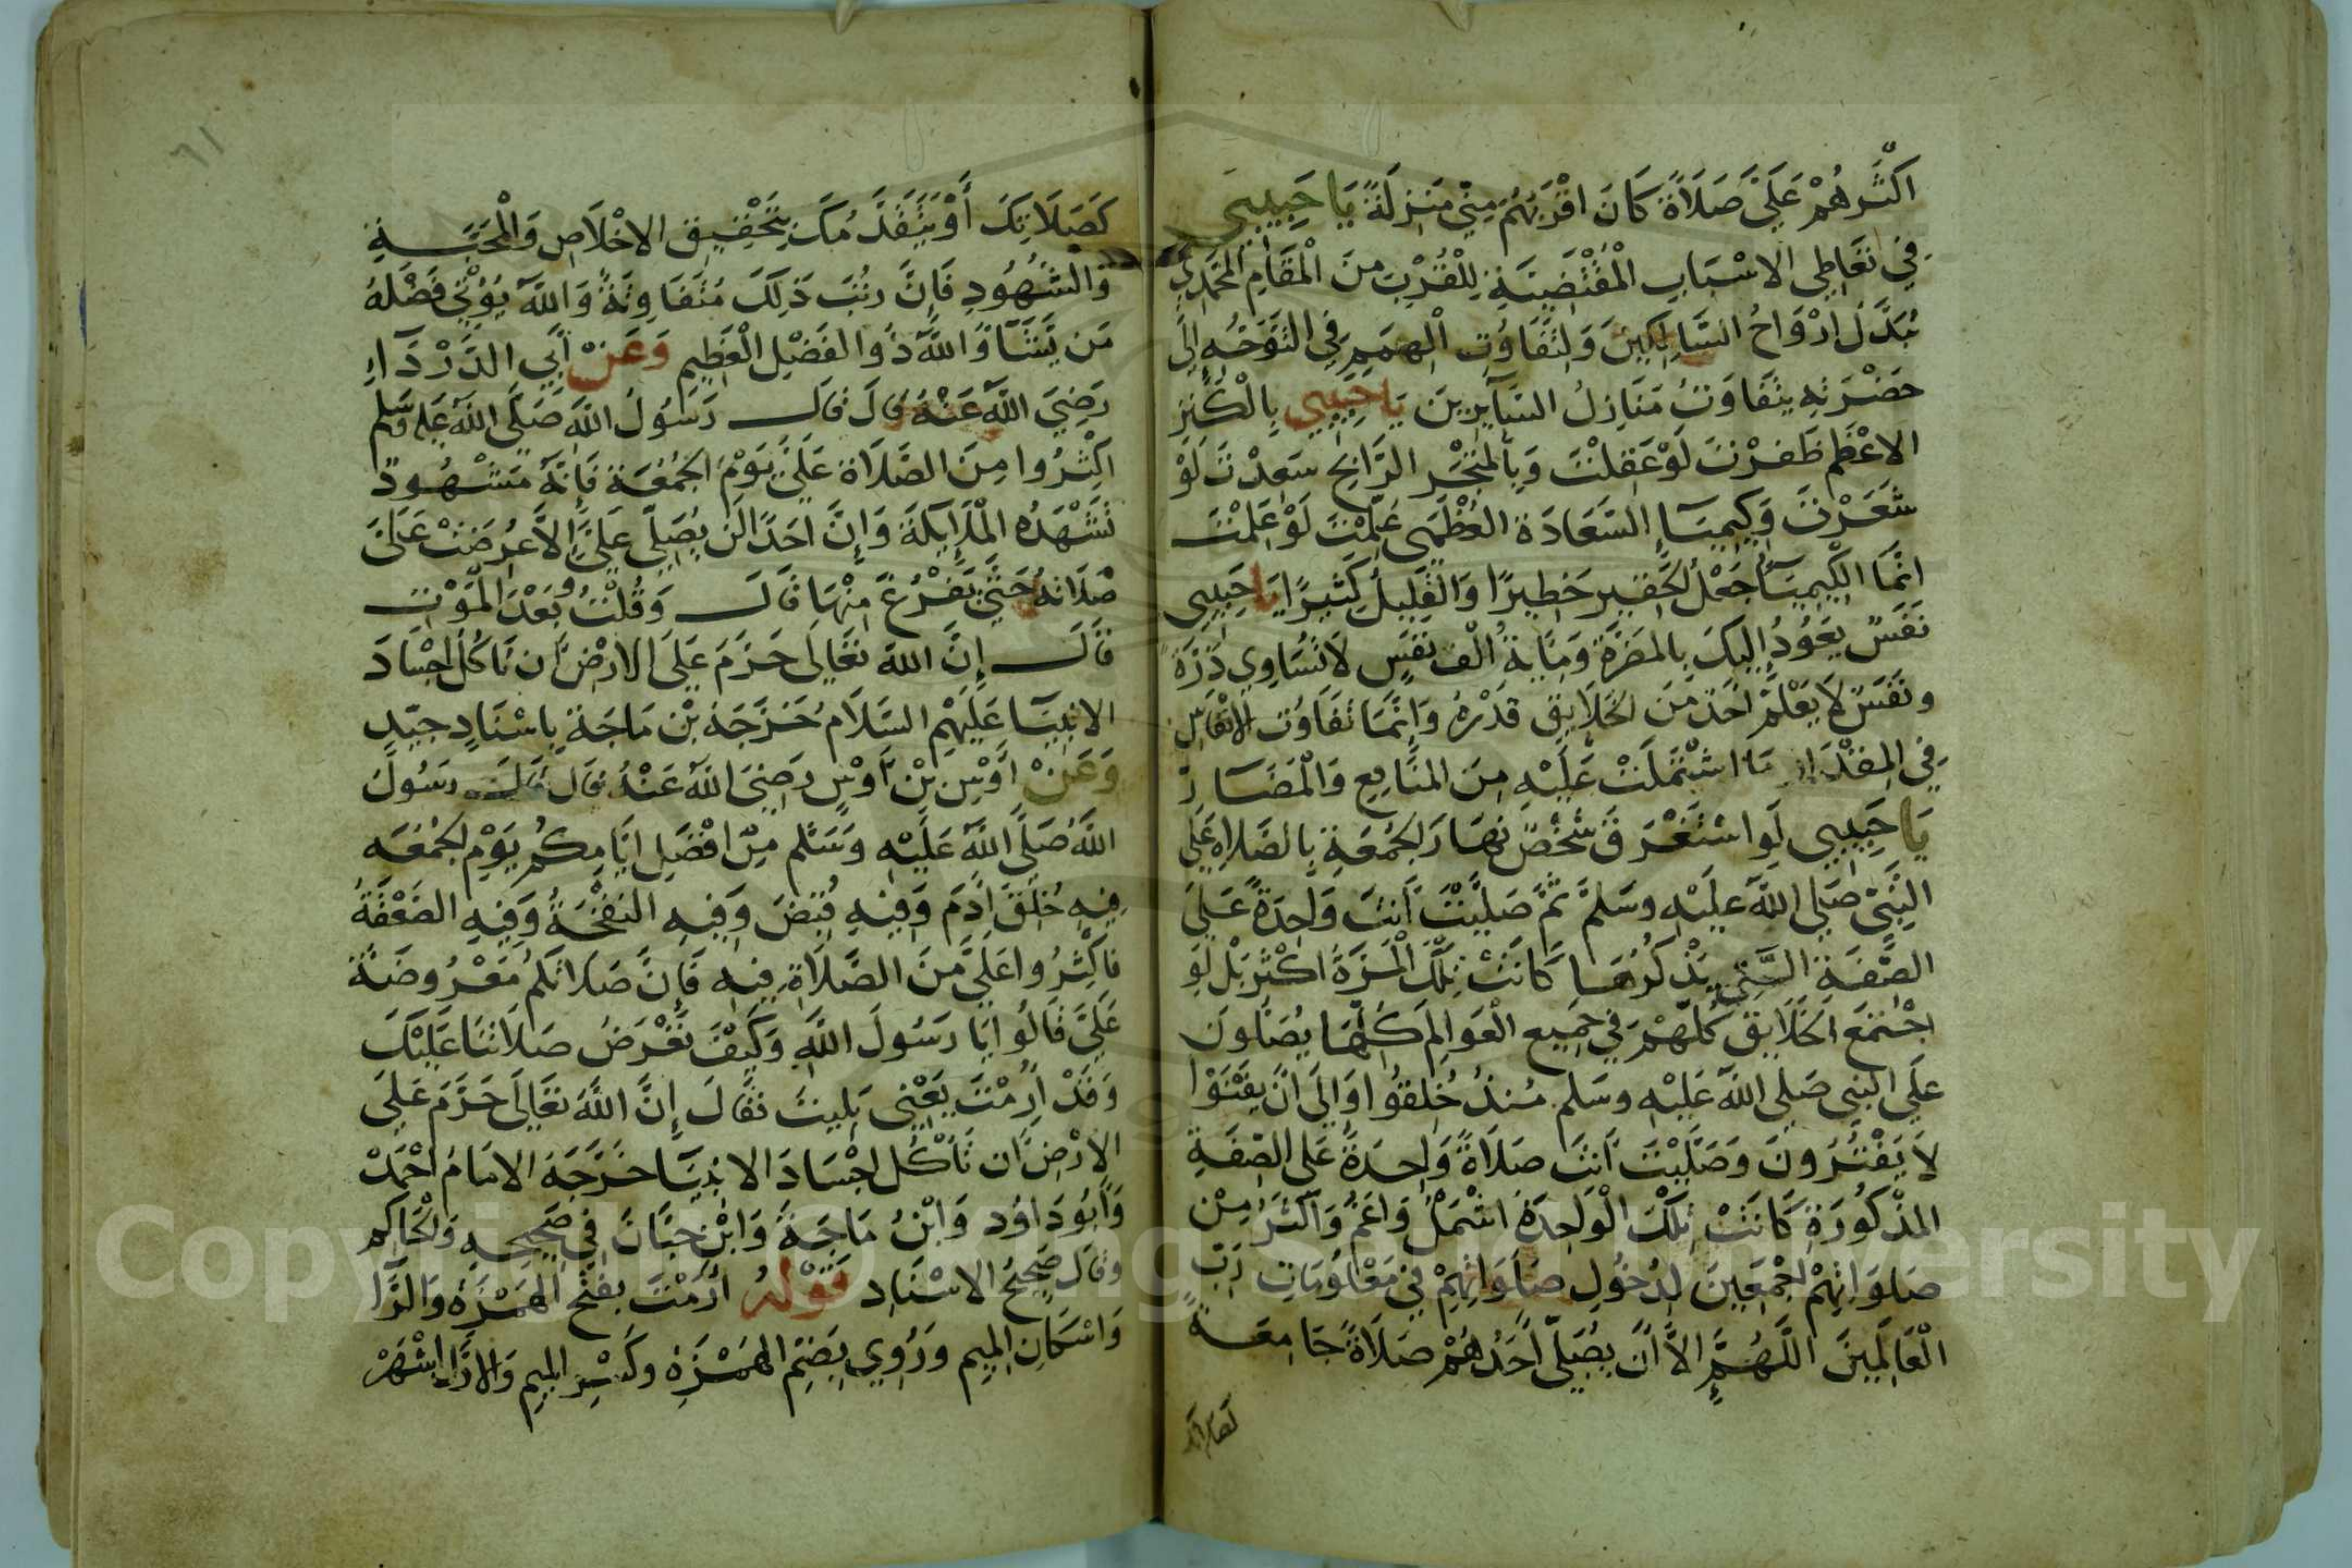 اكْثَرهُمْ عَلَيَّ صَلَاةً كَانَ اقْرَبَهُمْ مِنِّي مَنْزِلَةً يَا حَبِيبِي
فِي تَعَاطِي الاسْبَابِ الْمُقْتَضِيَةِ لِلْقُرْبِ مِنَ الْمَقَامِ الْمُحَمَّدِيِّ
تُبَدَّلُ ارْوَاحُ السَّالِكِينَ وَلِتَفَاوُتِ الْهِمَمِ فِي التَّوَجُّهِ إِلَى
حَضْرَتِهِ يَتَفَاوَتُ مَنَازِلُ السَّآيِرِينَ يَا حَبِيبِي بِالْكَنْزِ
الاعْظَمِ ظَفِرْتَ لَوْ عَقِلْتَ وَبِالْمَتْجَرِ الرَّابِحِ سَعِدْتَ لَوْ
شَعَرْتَ وَكِيمِيَآءِ السَّعَادَةِ الْعُظْمَى عُلِّمْتَ لَوْ عَلِمْتَ
انَّمَا الْكِيمِيَآءُ جَعْلُ الْحَقِيرِ خَطِيرًا وَالْقَلِيلُ كَثِيرًا يَا حَبِيبِي
نَفَسٌ يَعُودُ إِلَيكَ بِالمَضَرَّةِ وَمِايَةُ الْف نَفَسٍ لَا تُسَاوِي ذَرَّةً
وَنَفَسٌ لَا يَعْلَمُ احَدٌ مِنَ الْخَلَايِقِ قَدْرَهُ وَإِنَّمَا تَفَاوُت الانْفَاسِ
فِي الْمِقْدَارِ مَا اشْتَمَلَتْ عَلَيْهِ مِنَ الْمَنَافِعِ وَالْمَضَارّ
يَا حَبِيبِي لَوِ اسْتَغْرَقَ شَخْصٌ نَهَارَ الْجُمُعَةِ بِالصَّلاةِ عَلَى
النَّبِيِّ صَلَّى اللَّهُ عَلَيْهِ وَسَلَّمَ ثُمَّ صَلَّيْتَ أَنتَ وَاحِدَةً عَلَى
الصِّفَةِ الَّتِي يَذْكُرُهَا كَانَتْ تِلْكَ الْمَرَّةُ اكْثَر بَلْ لَوِ
اجْتَمَعَ الْخَلَايِقُ كُلُّهُمْ فِي جَمِيعِ الْعَوَالِمِ كُلِّهَا يُصَلُّونَ
عَلَى النَّبِي صَلَّى اللَّهُ عَلَيْهِ وَسَلَّم مُنذُ خُلِقُوا وَإِلَى انْ يَفْنَوْا
لَا يَفْتُرُونَ وَصَلَّيْتَ أَنتَ صَلَاةً وَاحِدَةً عَلَى الصِّفَةِ
الْمَذْكُورَةِ كَانَتْ تِلْكَ الْوَاحِدَةُ اشْمَلُ وَاعَمُّ وَاكْثَرُ مِنْ
صَلَوَاتِهِمْ اجْمَعِينَ لِدُخُولِ صَلَوَاتِهِمْ فِي مَعْلُومَاتِ رَبّ
الْعَالَمِينَ اللَّهُمَّ إِلاَّ أَنْ يُصَلِّيَ أَحَدُهُمْ صَلَاةً جَامِعَةً
كصلاتك
٦١
كَصَلَاتِكَ أَوْ يَتَقَدَّمُكَ بِتَحْقِيقِ الاخْلَاصِ وَالْمَحَبَّةِ
وَالشُّهُودِ فَإِنَّ رُتَبَ ذَلِكَ مُتَفَاوِتَةٌ وَاللَّهُ يُؤْتِي فَضْلَهُ
مَن يَشَآءُ وَاللَّهُ ذُوا الفَضْلِ الْعَظِيمِ وَعَنْ أَبِي الدَّرْدَآءِ
رَضِيَ اللَّهُ عَنْهُ قَالَ قَالَ رَسُولُ اللَّهِ صَلَّى اللَّهُ عَلَيهِ وَسَلم
اكْثِرُوا مِنَ الصَّلَاةِ عَلَيَّ يَوْمَ الْجُمُعَةِ فَإِنَّهُ مَشْهُودٌ
تَشْهَدُهُ الْمَلَايِكَةُ وَإِنَّ احَدًا لَن يُصَلِّيَ عَلَيَّ إِلاَّ عُرِضَتْ عَلَيَّ
صَلَاتهُ حَتَّى يَفْرُغَ مِنْهَا قَالَ وَقُلْتُ وَبَعْدَ الْمَوْتِ
قَالَ إِنَّ اللَّهَ تَعَالَى حَرَّمَ عَلَى الارْضِ أَن تَأكُلَ اجْسَادَ
الانْبِيَآ عَلَيْهِم السَّلَامُ خَرَّجَهُ بْن مَاجَةَ بِاسْنَادٍ جَيِّدٍ
وَعَنْ اوْسِ بْنِ أَوْسٍ رَضِيَ اللَّهُ عَنْهُ قَالَ قَالَ رَسُولُ
اللَّهِ صَلَّى اللَّهُ عَلَيْهِ وَسَلَّم مِنْ افْضَلِ ايَّامِكُم يَوْم الْجُمُعَةِ
فِيهِ خُلِقَ آدَمُ وَفِيهِ قُبِضَ وَفِيهِ النَّفْخَةُ وَفِيهِ الصَّعْقَةُ
فَاكْثِرُوا عَلَيَّ مِنَ الصَّلَاةِ فِيهِ فَإِنَّ صَلَاتَكُمْ مَعْرُوضَةٌ
عَلَيَّ قَالُوا يَا رَسُولَ اللَّهِ وَكَيْفَ تُعْرَضُ صَلَاتُنَا عَلَيْكَ
وَقَدْ ارَمْتَ يَعْنِي بَلِيتَ فَقَالَ إِنَّ اللَّهَ تَعَالَى حَرَّمَ عَلَى
الارْضِ أَن تَأْكُلَ اجْسَادَ الانْبِيَآ خَرَّجَهُ الامَامُ احْمَدْ
وَأَبُو دَاوُد وَابْنُ مَاجَةَ وَابْن حِبَّانَ فِي صَحِيحِهِ وَالْحَاكِم
وَقَالَ صَحِيحُ الاسْنَادِ قَوْلُهُ ارَمْتَ بِفَتْحِ الْهَمْزَةِ وَالرَّا
وَاسْكَانِ الْمِيمِ وَرُوِيَ بِضَمِّ الْهَمْزَةِ وَكَسْرِ الْمِيمِ وَالاوَّلُ اشْهَرْ
Copyright © King Saud University